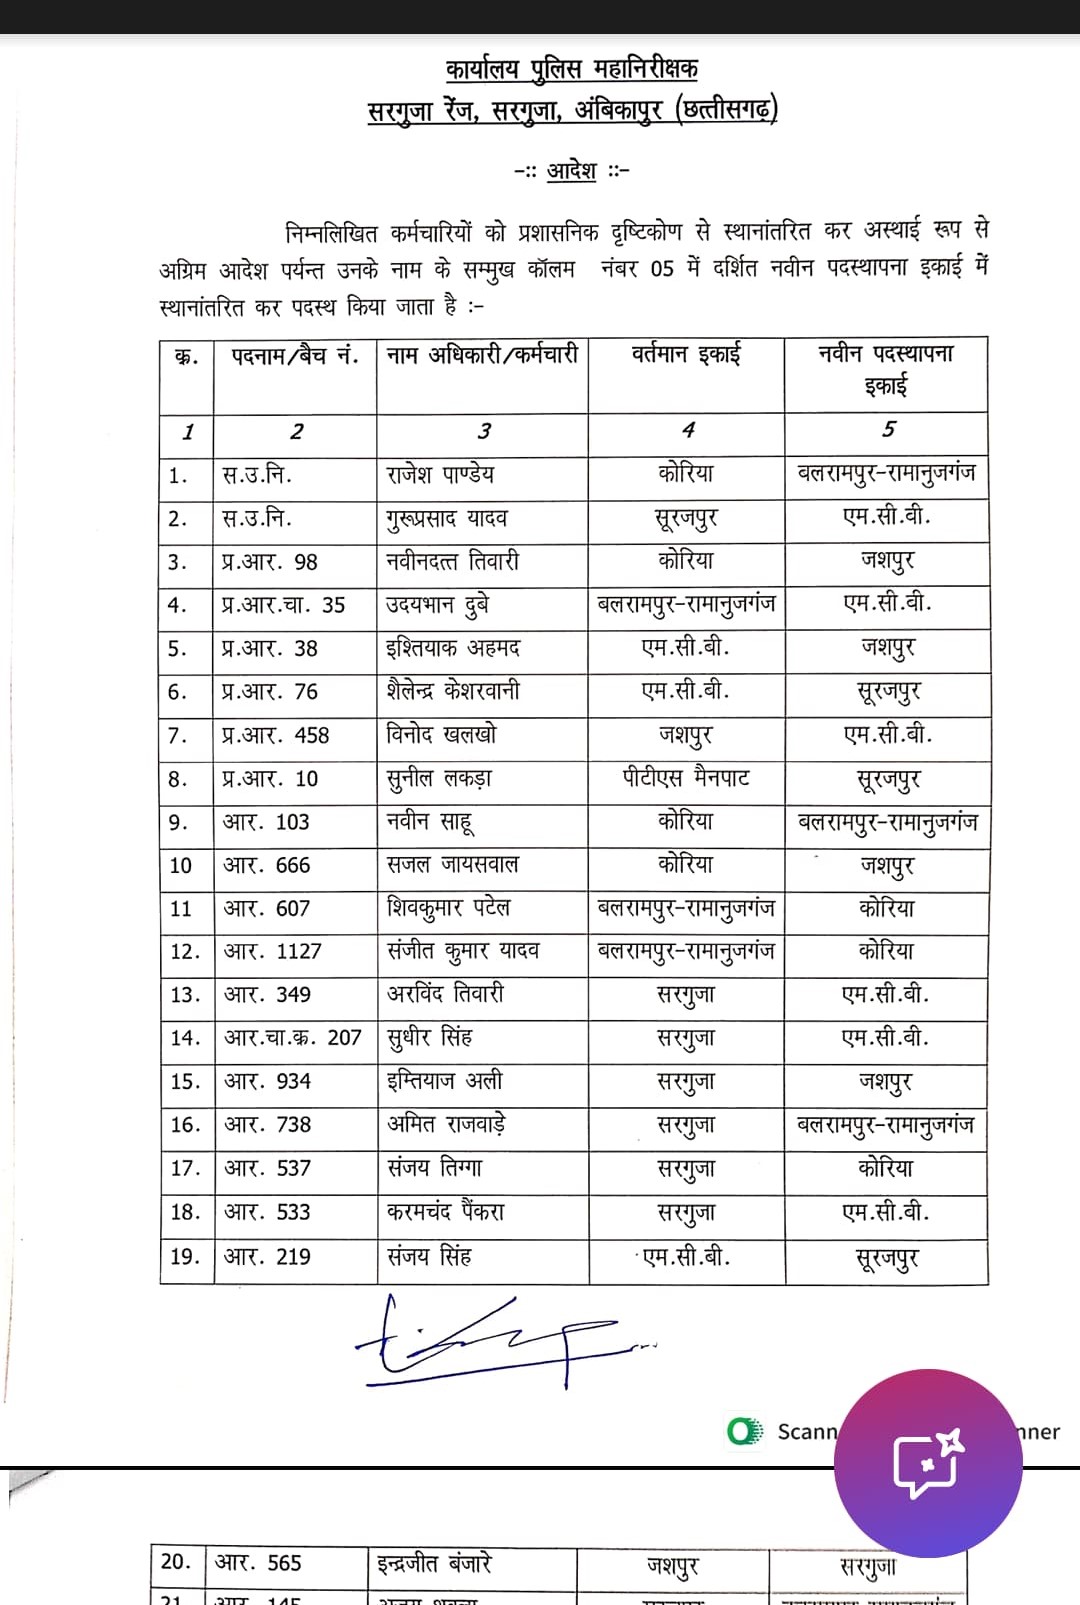 कार्यालय पुलिस महानिरीक्षक
सरगुजा रेंज, सरगुजा, अंबिकापुर (छत्तीसगढ़)
-:: आदेश ::-
निम्नलिखित कर्मचारियों को प्रशासनिक दृष्टिकोण से स्थानांतरित कर अस्थाई रूप से
अग्रिम आदेश पर्यन्त उनके नाम के सम्मुख कॉलम नंबर 05 में दर्शित नवीन पदस्थापना इकाई में
स्थानांतरित कर पदस्थ किया जाता है :-
क्र. पदनाम/बैच नं. नाम अधिकारी/कर्मचारी वर्तमान इकाई नवीन पदस्थापना
इकाई
1 2 3 4 5
1. स.उ.नि. राजेश पाण्डेय कोरिया बलरामपुर-रामानुजगंज
2. स.उ.नि. गुरूप्रसाद यादव सूरजपुर एम.सी.वी.
3. प्र.आर. 98 नवीनदत्त तिवारी कोरिया जशपुर
4. प्र.आर.चा. 35 उदयभान दुबे बलरामपुर-रामानुजगंज एम.सी.वी.
5. प्र.आर. 38 इश्तियाक अहमद एम.सी.बी. जशपुर
6. प्र.आर. 76 शैलेन्द्र केशरवानी एम.सी.बी. सूरजपुर
7. प्र.आर. 458 विनोद खलखो जशपुर एम.सी.वी.
8. प्र.आर. 10 सुनील लकड़ा पीटीएस मैनपाट सूरजपुर
9. आर. 103 नवीन साहू कोरिया बलरामपुर-रामानुजगंज
10 आर. 666 सजल जायसवाल कोरिया जशपुर
11 आर. 607 शिवकुमार पटेल बलरामपुर-रामानुजगंज कोरिया
12. आर. 1127 संजीत कुमार यादव बलरामपुर-रामानुजगंज कोरिया
13. आर. 349 अरविंद तिवारी सरगुजा एम.सी.वी.
14. आर.चा.क्र. 207 सुधीर सिंह सरगुजा एम.सी.वी.
15. आर. 934 इम्तियाज अली सरगुजा जशपुर
16. आर. 738 अमित राजवाड़े सरगुजा बलरामपुर-रामानुजगंज
17. आर. 537 संजय तिग्गा सरगुजा कोरिया
18. आर. 533 करमचंद पैंकरा सरगुजा एम.सी.वी.
19. आर. 219 संजय सिंह एम.सी.बी. सूरजपुर
20. आर. 565 इन्द्रजीत बंजारे जशपुर सरगुजा